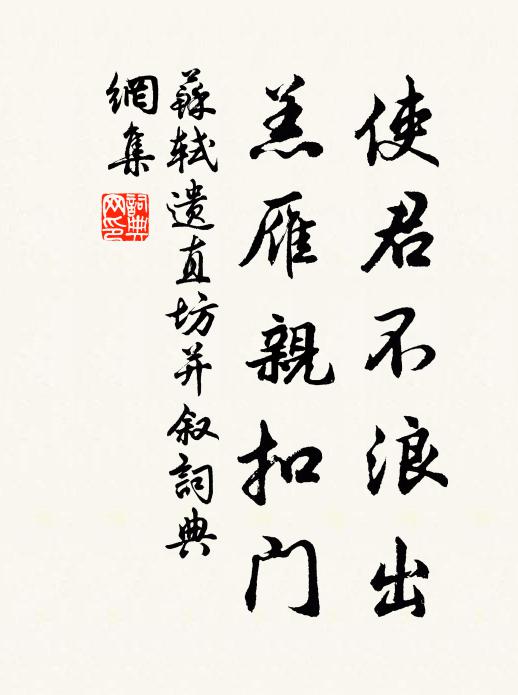 使君不浪出
羔雁親扣门
蘇轼遗直坊并叙詞典
網集
詞典网印